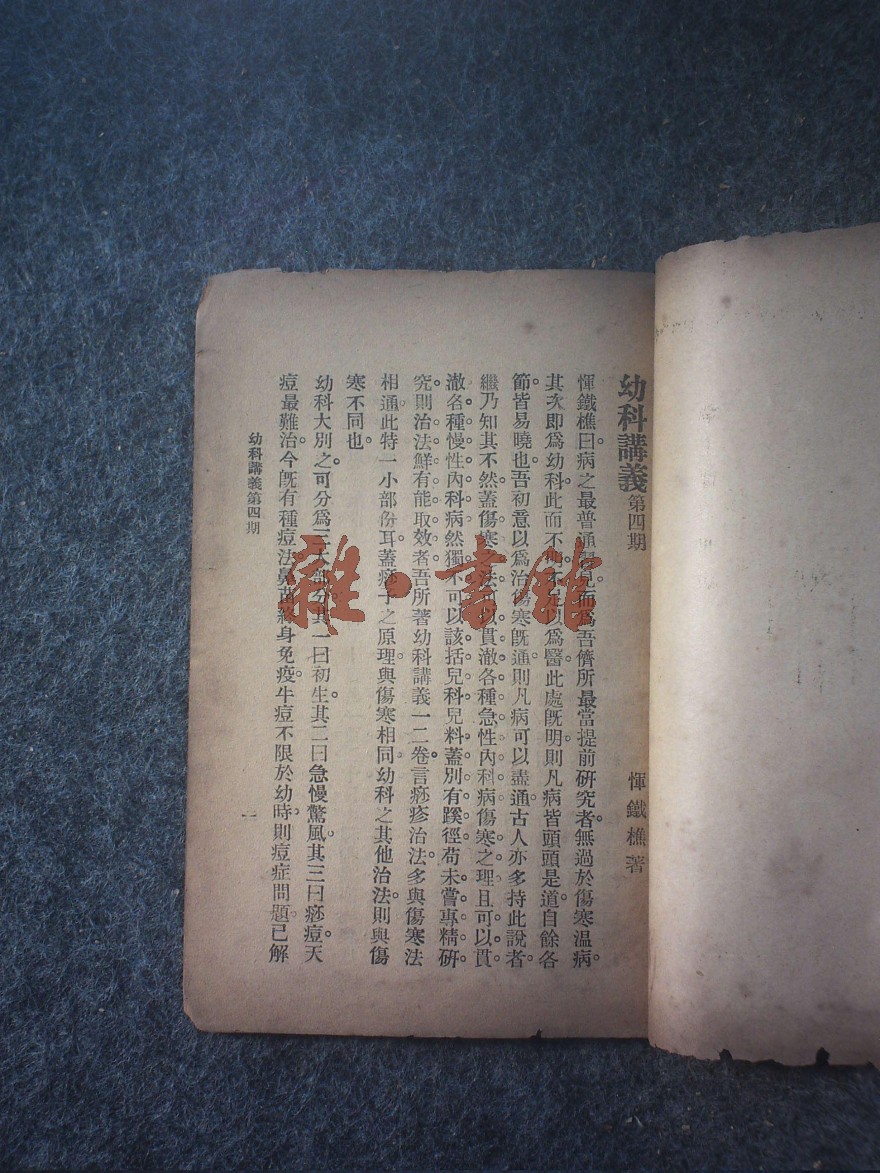 幼科講義第四期
惲鐵樵著
惲鐵樵曰病之最普通習見而爲吾儕所最當提前研究者無過於傷寒溫病。
其次即爲幼科此而不能不足以爲醫此處既明則凡病皆頭頭是道自餘各
節皆易曉也吾初意以爲治傷寒既通則凡病可以盡通古人亦多持此說者。
繼乃知其不然蓋傷寒之法可以貫澈各種急性內科病傷寒之理且可以貫
澈各種慢性內科病然獨不可以該括兒科兒料蓋別有蹊徑苟未嘗專精研
究則治法鮮有能取效者吾所著幼科講義一二卷言痧疹治法多與傷寒法
相通此特一小部份耳蓋痧子之原理與傷寒相同幼科之其他治法則與傷
寒不同也。
幼科大別之可分爲三大部分其一曰初生其二曰急慢驚風其三曰痧痘天
痘最難治今既有種痘法鼻苗終身免疫牛痘不限於幼時則痘症問題已解
幼科講義第四期
一
雜·書館